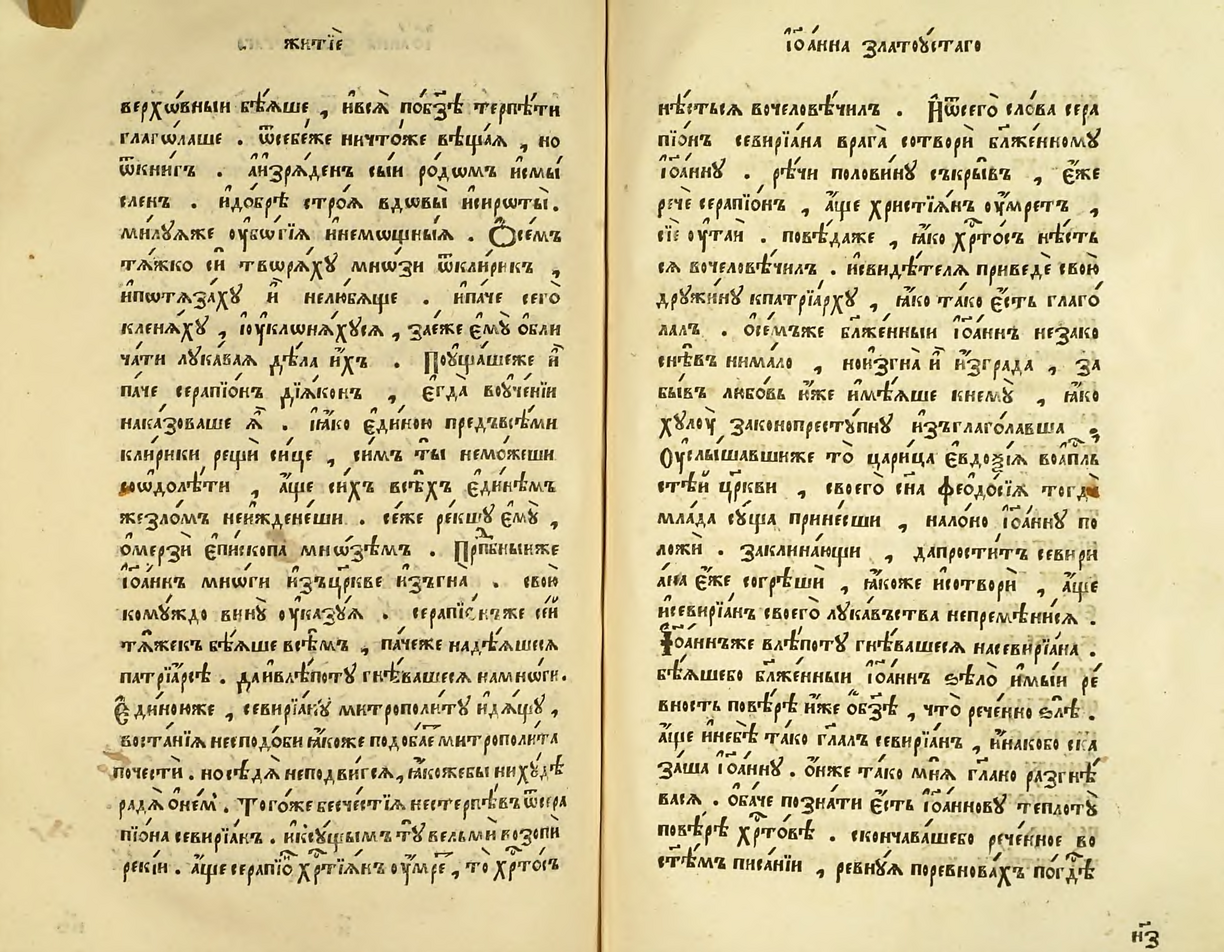 житїѐ
верхѡ́вныи бѣ́ѧше , ивсѧ̀ побз҃ѣ терпѣ́ти
глагѡ́лаше . ѿсебѐже ничто́же вѣща́ѧ , но
ѿкни́гъ . а҆изрѧ́денъ сыи ро́дѡмъ и҆смы́
сленъ . и҆до́брѣ стро́ѧ вдѡвы̀ и҆сирѡты̀ .
ми́лꙋѧже ᲂу҆бѡ́гїѧ инемѡщны́ѧ . Ѻ҆се́мъ
тѧ́жко си̑ твѡрѧ́хꙋ мнѡ́зи ѿкли́рикъ ,
и҆пѡтѧза́хꙋ и҆̀ нелю́бѧще . ипа́че сего̀
кленѧ́хꙋ , іᲂу҆клѡнѧ́хꙋсѧ , за́еже є҆мꙋ̀ ѡ҆бли
ча́ти лꙋка́ваѧ дѣ́ла и҆́хъ . Поꙋща́шеже и҆̀
па́че серапїо́нъ дїѧ́конъ , є҆гда̀ воꙋче́нїи
нака́зоваше ѧ҆̀ . ꙗ҆́ко є҆ди́ною предъвсѣ́ми
кли́рики рещѝ си́це , си́мъ ты̀ немо́жеши
ѡдолѣ́ти , а҆́ще си́хъ всѣ́хъ є҆ди́нѣмъ
жезло́мъ неижденѐши . се́же ре́кшꙋ є҆мꙋ̀ ,
ѡ҆мерзѝ є҆пи́скопа мнѡ́зѣмъ . Прпⷣбныиже
їѡа́ннъ мнѡ́ги и҆зъцр҃кве и҆зъгна̀ . свою̀
комꙋ́ждо винꙋ̀ ᲂу҆ка́зꙋѧ . серапїѻ́нъже се́й
тѧ́жекъ бѣ́ѧше всѣ́мъ , па́чеже надѣ́ѧшесѧ
патрїа́рсѣ . даивлѣ́потꙋ гнѣ́вашесѧ намнѡ́ги .
Є҆ди́ноиже , севирїа́нꙋ митропо́литꙋ и҆дꙋ́щꙋ ,
воста́нїѧ несподо́би ꙗ҆́коже подоба́е митропо́лита
поче́сти . носѣ́дѧ неподви́гсѧ , ꙗ҆́кожебы ни хꙋдѣ̀
радѧ̀ ѡ҆не́м . Того́же бесче́стїѧ нестерпѣ́въ ѿсера
пїо́на севирїа́нъ . иксꙋ́щымъ тꙋ̀ вельмѝ возопѝ
рекі́и . а҆́ще серапїо́ хрⷭ҇тїѧ́нъ ᲂу҆мре́ , то̀ хрⷭ҇то́съ
І҆ѡа́нна златоꙋ́стаго
нѣ́стьсѧ вочеловѣ́чилъ . И҆ѿсего̀ сло́ва сера
пїо́нъ севирїа́на врага̀ сотворѝ бл҃же́нномꙋ
І҆ѡа́ннꙋ . рѣ́чи полови́нꙋ съкры́въ , є҆́же
речѐ серапїо́нъ , а҆́ще христїѧ́нъ ᲂу҆́мретъ ,
сїѐ ᲂу҆таи̑ . повѣ́даже , ꙗ҆́ко хрⷭ҇то́съ нѣ́сть
сѧ вочеловѣ́чилъ . и҆свидѣ́телѧ приведѐ свою̀
дрꙋжи́нꙋ кпатрїа́рхꙋ , ꙗ҆́ко та́ко є҆́сть глаго́
лалъ . ѡ҆се́мъже бл҃же́нныи І҆ѡа́ннъ незако
снѣ́въ нима́ло , ноизгна̀ и҆̀ и҆згра́да , за
бы́въ любо́вь и҆́же и҆мѣ́ѧше кнемꙋ̀ , ꙗ҆́ко
хꙋлꙋ̀ законопрестꙋ́пнꙋ и҆зъглаго́лавша .
Оуслы́шавшиже то̀ цари́ца є҆ѵдо́ѯїѧ воапⷭ҇лъ
стѣ́й цр҃кви , своего̀ сн҃а феодо́сїѧ тогда̀
мла́да сꙋ́ща прине́сши , нало́но І҆ѡа́ннꙋ по
ложѝ . заклина́ющи , дапрости́тъ севири
а́на є҆́же согрѣшѝ , ꙗ҆́коже и҆сотворѝ , а҆́ще
и҆севирїа́нъ своего̀ лꙋка́въства непремѣни́сѧ .
І҆ѡа́ннъже влѣ́потꙋ гнѣ́вашесѧ насевирїа́на .
бѣ́ѧшебо бл҃же́нныи І҆ѡа́ннъ ѕѣло̀ и҆мы́и ре́
вность повѣ́рѣ и҆́же ѡ҆бз҃ѣ , что̀ рече́нно ѕлѣ̀ .
а҆́ще и҆небѣ̀ та́ко гл҃алъ севирїа́нъ , и҆на́кобо ска
за́ша І҆ѡа́ннꙋ . ѻ҆́нже та́ко мнѧ̀ гл҃ано разгнѣ́
васѧ . ѻ҆ба́че позна́ти є҆́сть І҆ѡа́нновꙋ теплотꙋ̀
повѣ́рѣ хрⷭ҇то́вѣ . сконча́вашебо рече́нное во
ст҃ѣ́мъ писа́нїи , ревнꙋ́ѧ поревнова́хъ погдⷭ҇ѣ
н҃з